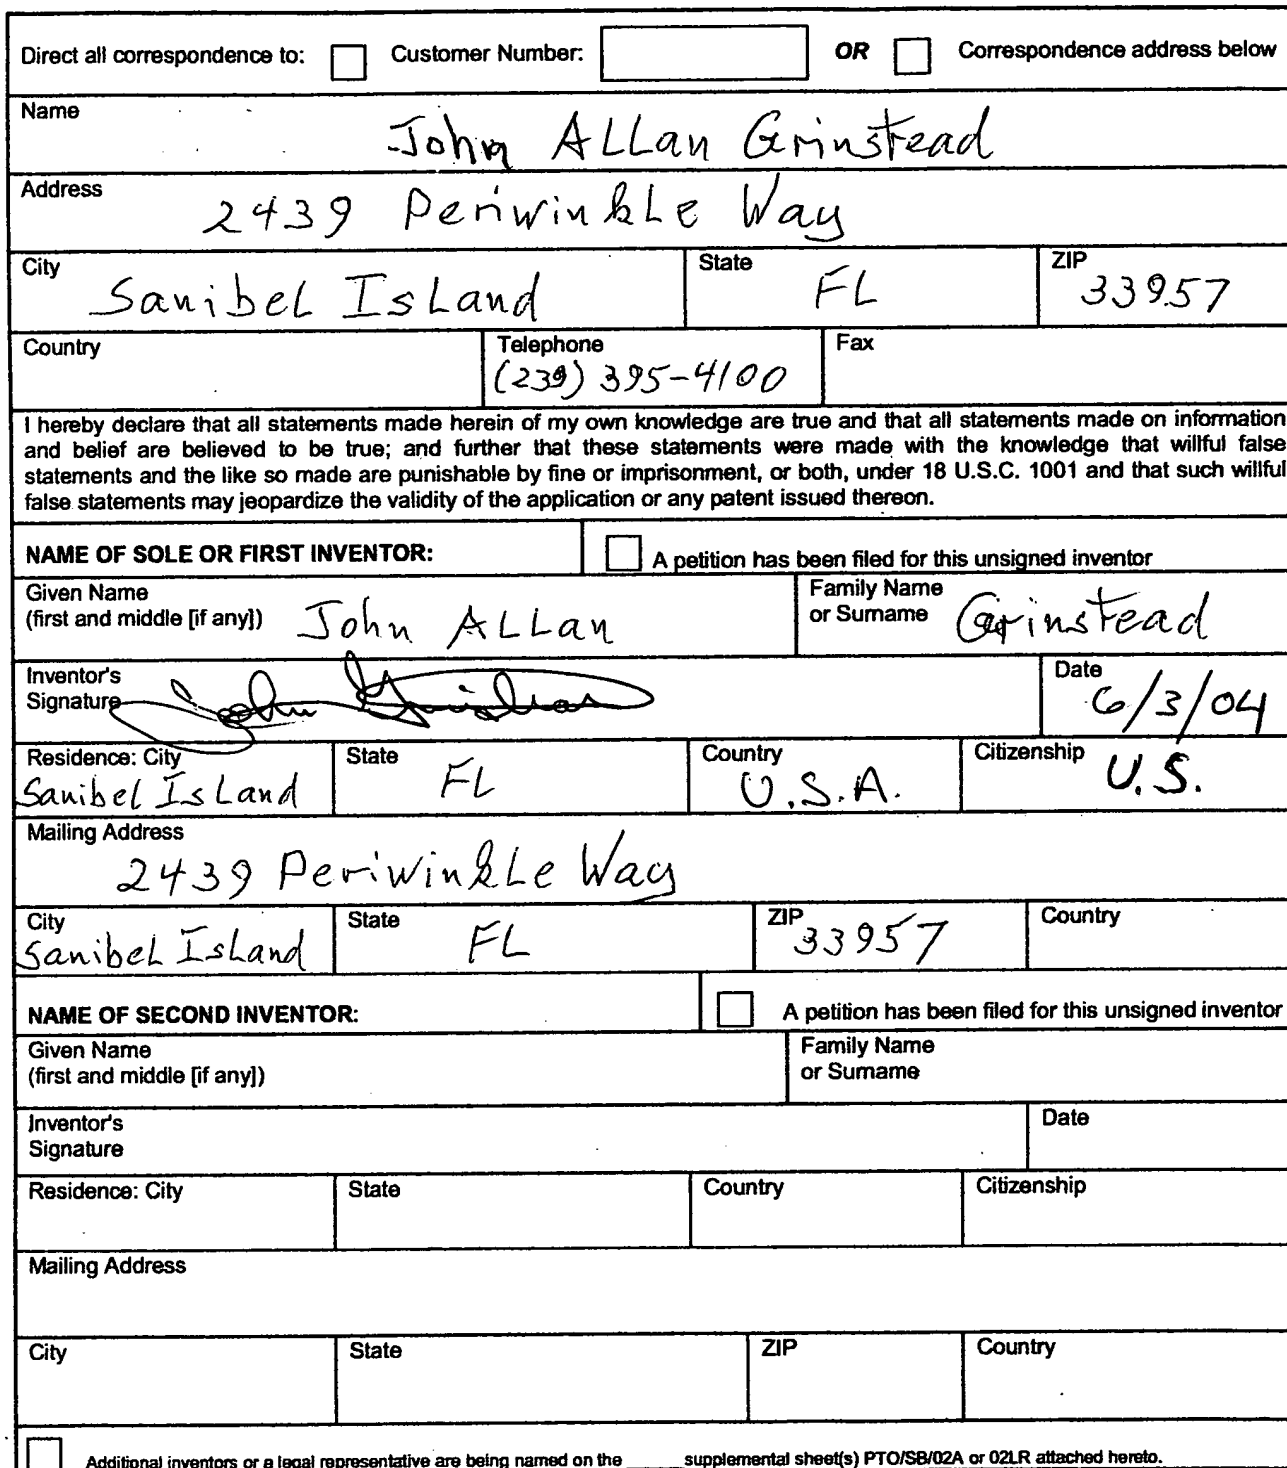 Direct all correspondence to: Customer Number: OR Correspondence address below
Name
John ALLan Grinstead
Address
2439 Periwinkle Way
City State ZIP
Sanibel Island FL 33957
Country Telephone Fax
(239) 395-4100
I hereby declare that all statements made herein of my own knowledge are true and that all statements made on information
and belief are believed to be true; and further that these statements were made with the knowledge that willful false
statements and the like so made are punishable by fine or imprisonment, or both, under 18 U.S.C. 1001 and that such willful
false statements may jeopardize the validity of the application or any patent issued thereon.
NAME OF SOLE OR FIRST INVENTOR: A petition has been filed for this unsigned inventor
Given Name Family Name
(first and middle [if any]) John ALLan or Surname Grinstead
Inventor's Date
Signature John Grinstead 6/3/04
Residence: City State Country Citizenship
Sanibel Island FL U.S.A. U.S.
Mailing Address
2439 Periwinkle Way
City State ZIP Country
Sanibel Island FL 33957
NAME OF SECOND INVENTOR: A petition has been filed for this unsigned inventor
Given Name Family Name
(first and middle [if any]) or Surname
Inventor's Date
Signature
Residence: City State Country Citizenship
Mailing Address
City State ZIP Country
Additional inventors or a legal representative are being named on the _____ supplemental sheet(s) PTO/SB/02A or 02LR attached hereto.